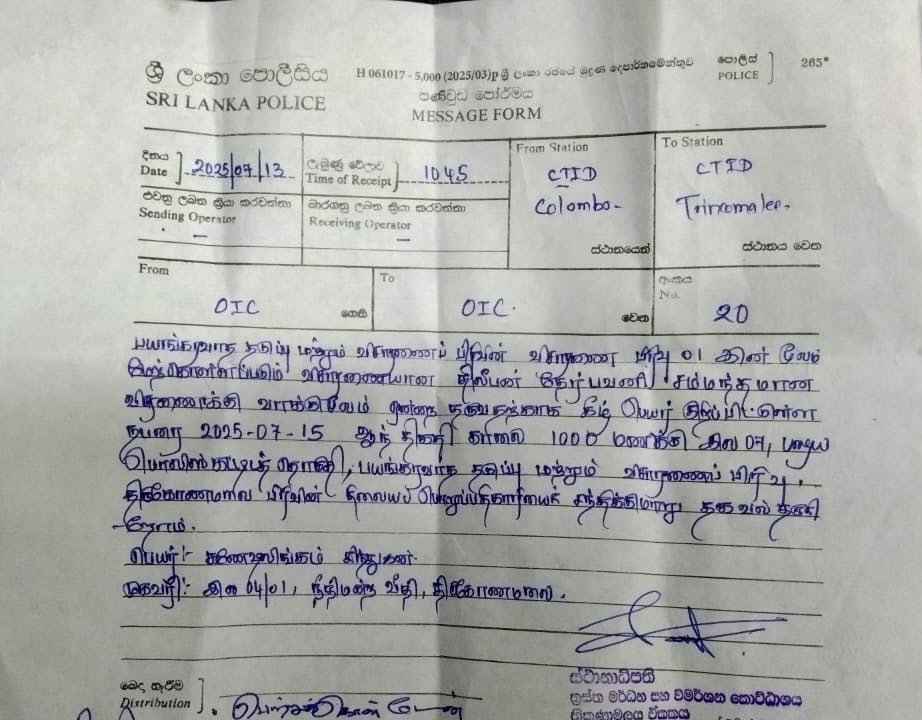 ශ්‍රී ලංකා පොලීසිය
SRI LANKA POLICE
H 061017 - 5,000 (2025/03)p ශ්‍රී ලංකා රජයේ මුද්‍රණ දෙපාර්තමේන්තුව
පොලිස්
POLICE
265
පණිවුඩ පෝර්මය
MESSAGE FORM
දිනය
Date
2025/07/13
ලැබුණු වේලාව
Time of Receipt
1045
From Station
CTID
Colombo -
ස්ථානයෙන්
To Station
CTID
Trinxomalee -
ස්ථානය වෙත
එවනු ලබන ක්‍රියා කරවන්නා
Sending Operator
-
භාරගනු ලබන ක්‍රියා කරවන්නා
Receiving Operator
-
From
OIC
ගෙන්
To
OIC.
වෙත
අංකය
No.
20
பயங்கரவாத தடுப்பு மற்றும் விசாரணைப் பிரிவின் விசாரணை பிரிவு 01 இன் மூலம்
மேற்கொள்ளப்படும் விசாரணையான திலீபன் சம்மந்தமான
வாக்குமூலம் ஒன்றை தருவதற்காக கீழ் பெயர் குறிப்பிட்டுள்ள
நபரை 2025-07-15 ஆந் திகதி காலை 1000 மணிக்கு இல 07, பழைய
பொலிஸ் பயங்கரவாத தடுப்பு மற்றும் விசாரணைப் பிரிவு,
திகோணமலை பிரிவின் நிலையப் பொறுப்பதிகாரியைச் சந்திக்குமாறு தகவல் தருகி
-றோம்.
பெயர் :-
முகவரி :- இல 04/01, நீதிமன்ற வீதி, திகோணமலை.
ස්ථානාධිපති
ත්‍රස්ත මර්ධන සහ විමර්ශන කොට්ඨාශය
ත්‍රිකුණාමලය ඒකකය
බෙදා හැරීම
Distribution